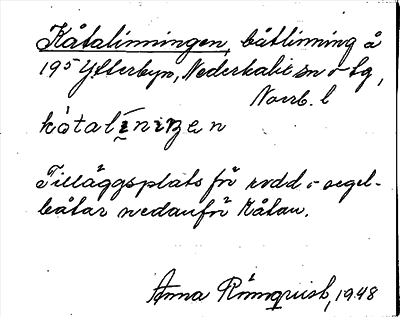 Kåtalinningen, båtlinning å
195 Ytterbyn, Nederkalix sn o tg,
Norrb. l
kåtalìniŋen
Tilläggsplats för rodd- o segel-
båtar nedanför Kåtan.
Anna Rönnquist, 1948